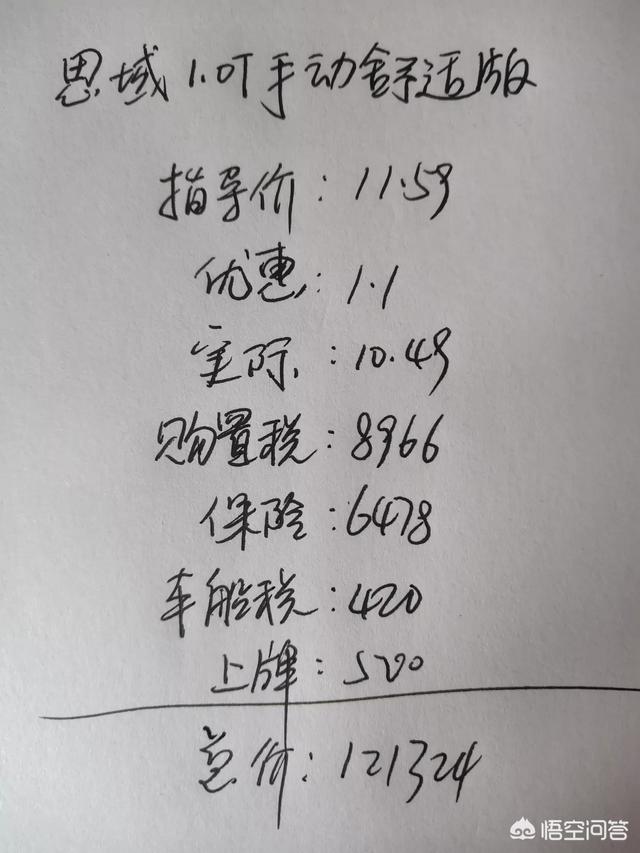 思域 1.0T手动舒适版
指导价:11.59
优惠:1.1
实际:10.49
购置税:8966
保险:6478
车船税:420
上牌:500
总价:121324
悟空问答